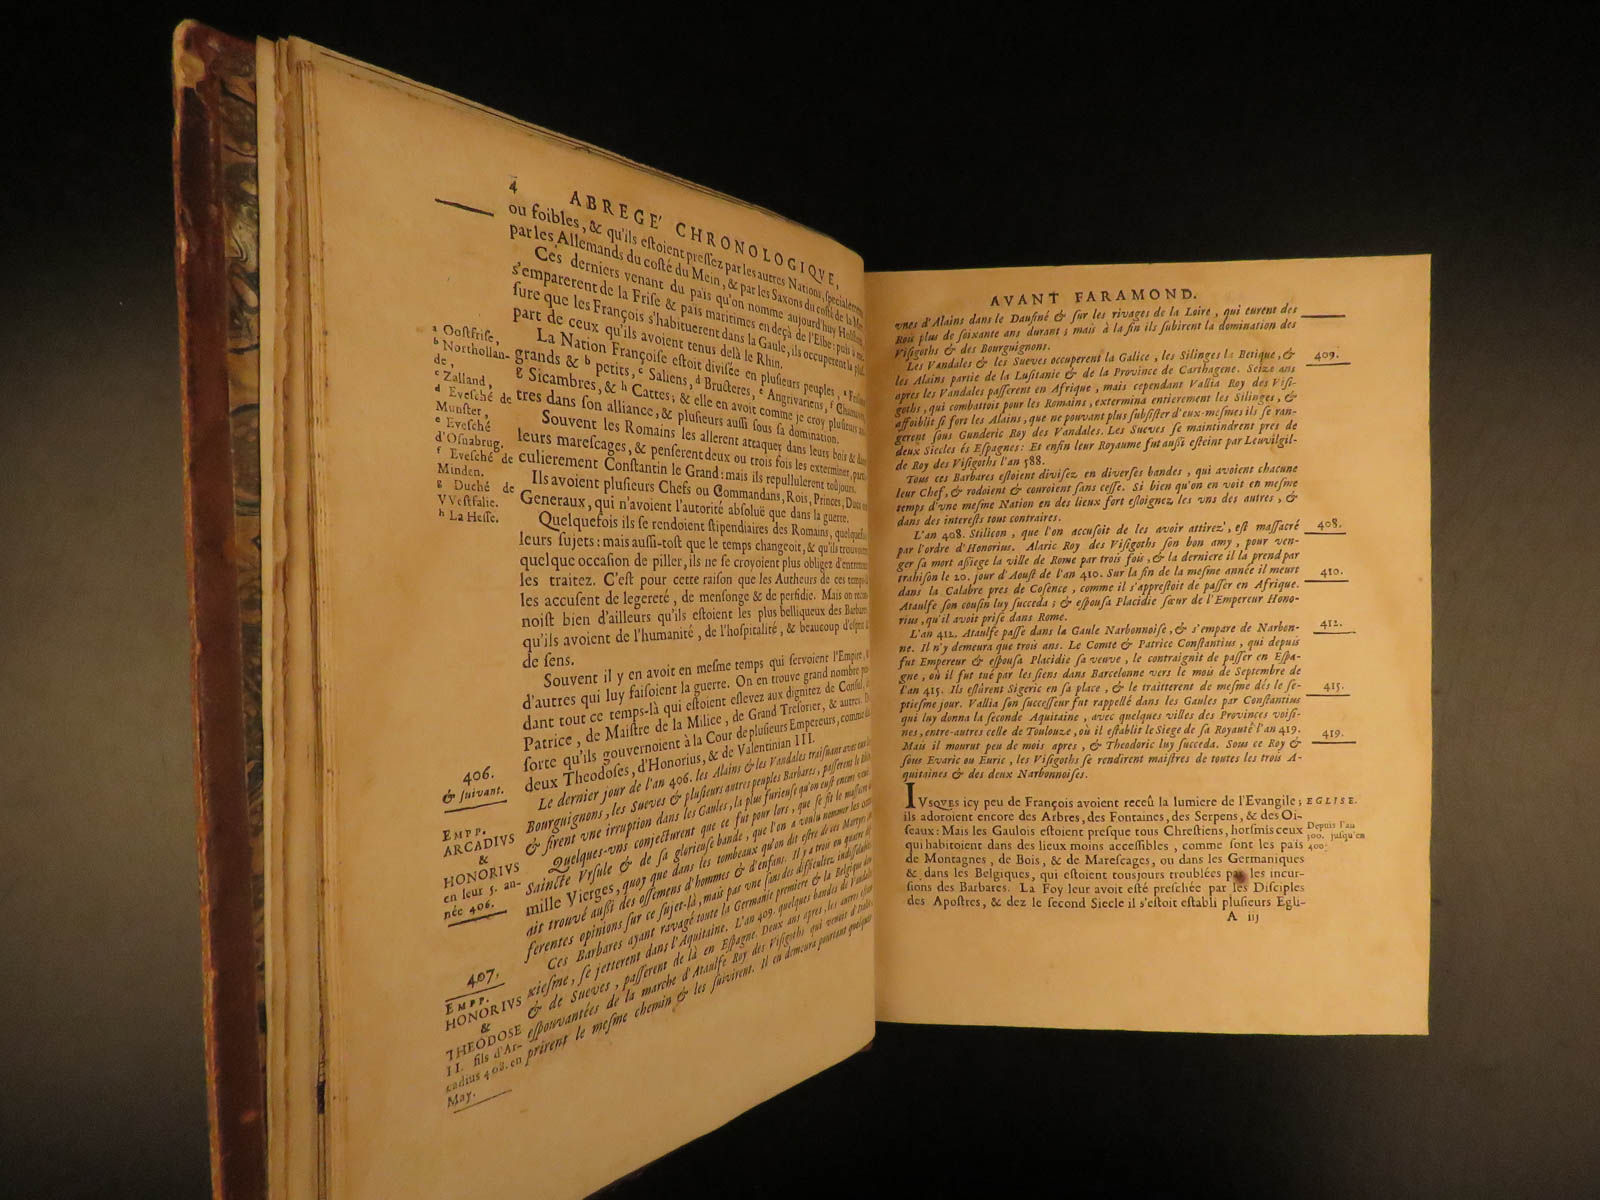 4 ABREGE' CHRONOLOGIQUE,
ou foibles, & qu'ils eſtoient preſſez par les autres Nations, ſpecialement
par les Allemands du coſté du Mein, & par les Saxons du coſté de la Mer.
Ces derniers venant du païs qu'on nomme aujourd'huy
s'emparerent de la Friſe & païs maritimes en deçà de l'Elbe: puis à me-
ſure que les François s'habituerent dans la Gaule, ils occuperent la pluſ-
part de ceux qu'ils avoient tenus delà le Rhin.
La Nation Françoiſe eſtoit diviſée en pluſieurs peuples, a
grands & b petits, c Saliens, d Bructeres, e Angrivariens, f Chamaves,
g Sicambres, & h Cattes; & elle en avoit comme je croy pluſieurs au-
tres dans ſon alliance, & pluſieurs auſſi ſous ſa domination.
Souvent les Romains les allerent attaquer dans leurs bois & dans
leurs mareſcages, & penſerent deux ou trois fois les exterminer, parti-
culierement Conſtantin le Grand: mais ils repullulerent toûjours.
Ils avoient pluſieurs Chefs ou Commandans, Rois, Princes, Ducs ou
Generaux, qui n'avoient l'autorité abſoluë que dans la guerre.
Quelquefois ils ſe rendoient ſtipendiaires des Romains, quelquefois
leurs ſujets: mais auſſi-toſt que le temps changeoit, & qu'ils trouvoient
quelque occaſion de piller, ils ne ſe croyoient plus obligez d'entretenir
les traitez. C'eſt pour cette raiſon que les Autheurs de ces temps-là
les accuſent de legereté, de menſonge & de perfidie. Mais on recon-
noiſt bien d'ailleurs qu'ils eſtoient les plus belliqueux des Barbares,
qu'ils avoient de l'humanité, de l'hoſpitalité, & beaucoup d'eſprit &
de ſens.
Souvent il y en avoit en meſme temps qui ſervoient l'Empire, &
d'autres qui luy faiſoient la guerre. On en trouve grand nombre pen-
dant tout ce temps-là qui eſtoient eſlevez aux dignitez de Conſul, de
Patrice, de Maiſtre de la Milice, de Grand Treſorier, & autres. De
ſorte qu'ils gouvernoient à la Cour de pluſieurs Empereurs, comme des
deux Theodoſes, d'Honorius, & de Valentinian III.
Le dernier jour de l'an 406. les Alains & les Vandales traiſnant avec eux les
Bourguignons, les Sueves & pluſieurs autres peuples Barbares, paſſerent le Rhin,
& firent une irruption dans les Gaules, la plus furieuſe qu'on euſt encore veuë.
Quelques-vns conjecturent que ce fut pour lors, que ſe fit le maſſacre de
Saincte Vrſule & de ſa glorieuſe bande, que l'on a voulu nommer les onze
mille Vierges, quoy que dans les tombeaux qu'on dit eſtre de ces Martyrs, on
ait trouvé auſſi des oſſemens d'hommes & d'enfans. Il y a trois ou quatre dif-
ferentes opinions ſur ce ſujet-là, mais pas vne ſans des difficultez indiſſolubles.
Ces Barbares ayant ravagé toute la Germanie premiere & la Belgique deu-
xieſme, ſe jetterent dans l'Aquitaine. L'an 409. quelques bandes de Vandales
& de Sueves, paſſerent de là en Eſpagne. Deux ans apres, les autres eſtant
eſpouvantées de la marche d'Ataulfe Roy des Viſigoths qui venoit d'Italie,
prirent le meſme chemin & les ſuivirent. Il en demeura pourtant quelques-
a Ooſtfriſe,
b Northollan-
de,
c Zalland,
d Eveſché de
Munſter,
e Eveſché
d'Oſnabrug,
f Eveſché de
Minden.
g Duché de
VVeſtfalie.
h La Heſſe.
406.
& ſuivant.
EMPP.
ARCADIVS
&
HONORIVS
en leur 5. an-
née 406.
407.
EMPP.
HONORIVS
&
THEODOSE
II. fils d'Ar-
cadius 408. en
May.
AVANT FARAMOND.
vnes d'Alains dans le Daufiné & ſur les rivages de la Loire, qui eurent des
Rois plus de ſoixante ans durant; mais à la fin ils ſubirent la domination des
Viſigoths & des Bourguignons.
Les Vandales & les Sueves occuperent la Galice, les Silinges la Betique, &
les Alains partie de la Luſitanie & de la Province de Carthagene. Seize ans
apres les Vandales paſſerent en Afrique, mais cependant Vallia Roy des Viſi-
goths, qui combattoit pour les Romains, extermina entierement les Silinges, &
affoiblit ſi fort les Alains, que ne pouvant plus ſubſiſter d'eux-meſmes ils ſe ran-
gerent ſous Gunderic Roy des Vandales. Les Sueves ſe maintindrent pres de
deux Siecles és Eſpagnes: Et enfin leur Royaume fut auſſi eſteint par Leuvilgil-
de Roy des Viſigoths l'an 588.
Tous ces Barbares eſtoient diviſez en diverſes bandes, qui avoient chacune
leur Chef, & rodoient & couroient ſans ceſſe. Si bien qu'on en voit en meſme
temps d'vne meſme Nation en des lieux fort eſloignez les vns des autres, &
dans des intereſts tout contraires.
L'an 408. Stilicon, que l'on accuſoit de les avoir attirez, eſt maſſacré
par l'ordre d'Honorius. Alaric Roy des Viſigoths ſon bon amy, pour ven-
ger ſa mort aſſiege la ville de Rome par trois fois, & la derniere il la prend par
trahiſon le 20. jour d'Aouſt de l'an 410. Sur la fin de la meſme année il meurt
dans la Calabre pres de Coſence, comme il s'appreſtoit de paſſer en Afrique.
Ataulfe ſon couſin luy ſucceda; & eſpouſa Placidie ſœur de l'Empereur Hono-
rius, qu'il avoit priſe dans Rome.
L'an 412. Ataulfe paſſe dans la Gaule Narbonnoiſe, & s'empare de Narbon-
ne. Il n'y demeura que trois ans. Le Comte & Patrice Conſtantius, qui depuis
fut Empereur & eſpouſa Placidie ſa veuve, le contraignit de paſſer en Eſpa-
gne, où il fut tué par les ſiens dans Barcelonne vers le mois de Septembre de
l'an 415. Ils eſlûrent Sigeric en ſa place, & le traitterent de meſme dés le ſe-
ptieſme jour. Vallia ſon ſucceſſeur fut rappellé dans les Gaules par Conſtantius
qui luy donna la ſeconde Aquitaine, avec quelques villes des Provinces voiſi-
nes, entre-autres celle de Toulouze, où il eſtablit le Siege de ſa Royauté l'an 419.
Mais il mourut peu de mois apres, & Theodoric luy ſucceda. Sous ce Roy &
ſous Evaric ou Euric, les Viſigoths ſe rendirent maiſtres de toutes les trois A-
quitaines & des deux Narbonnoiſes.
IVSQVES icy peu de François avoient receû la lumiere de l'Evangile;
ils adoroient encore des Arbres, des Fontaines, des Serpens, & des Oi-
ſeaux: Mais les Gaulois eſtoient preſque tous Chreſtiens, horſmis ceux
qui habitoient dans des lieux moins acceſſibles, comme ſont les païs
de Montagnes, de Bois, & de Mareſcages, ou dans les Germaniques
& dans les Belgiques, qui eſtoient touſjours troublées par les incur-
ſions des Barbares. La Foy leur avoit eſté preſchée par les Diſciples
des Apoſtres, & dez le ſecond Siecle il s'eſtoit eſtabli pluſieurs Egli-
A iij
409.
408.
410.
412.
415.
419.
EGLISE.
Depuis l'an
300. juſqu'en
400.